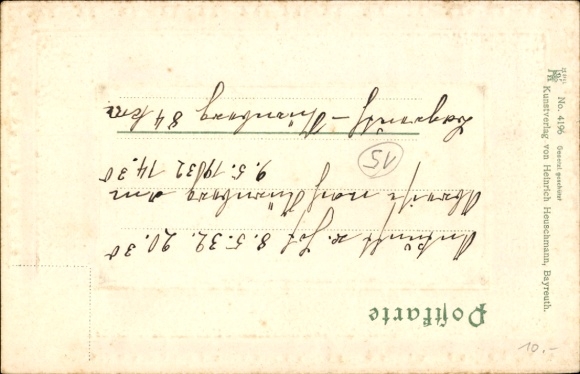 Postkarte
Ankunft v. Hof 8.5.32. 20.30
Abreise nach Nürnberg am
9.5.1932 14.30
15
Bayreuth – Nürnberg 84 km
No. 4196 Gesetzl. geschützt
Kunstverlag von Heinrich Heuschmann, Bayreuth.
10.-